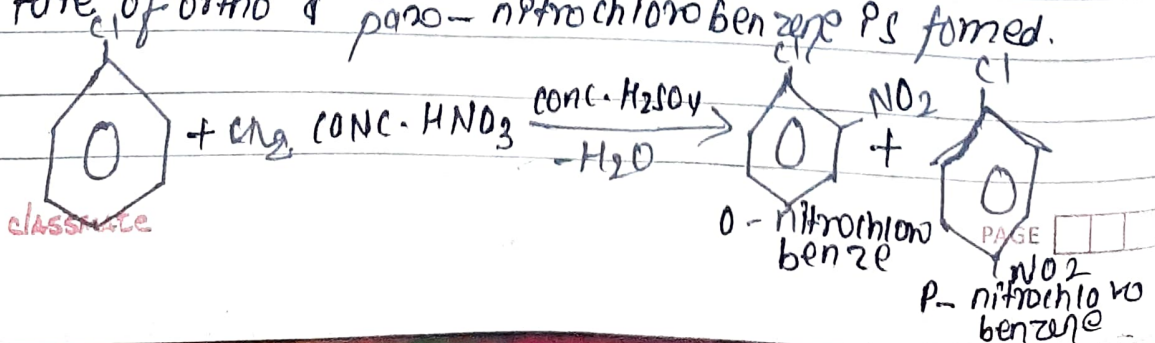 of ortho & para- nitrochlorobenzene is fomed.
Cl Cl Cl
+ CONC. HNO3 conc. H2SO4 NO2 +
-H2O
classmate O- nitrochloro PAGE
benze NO2
P- nitrochloro
benzene